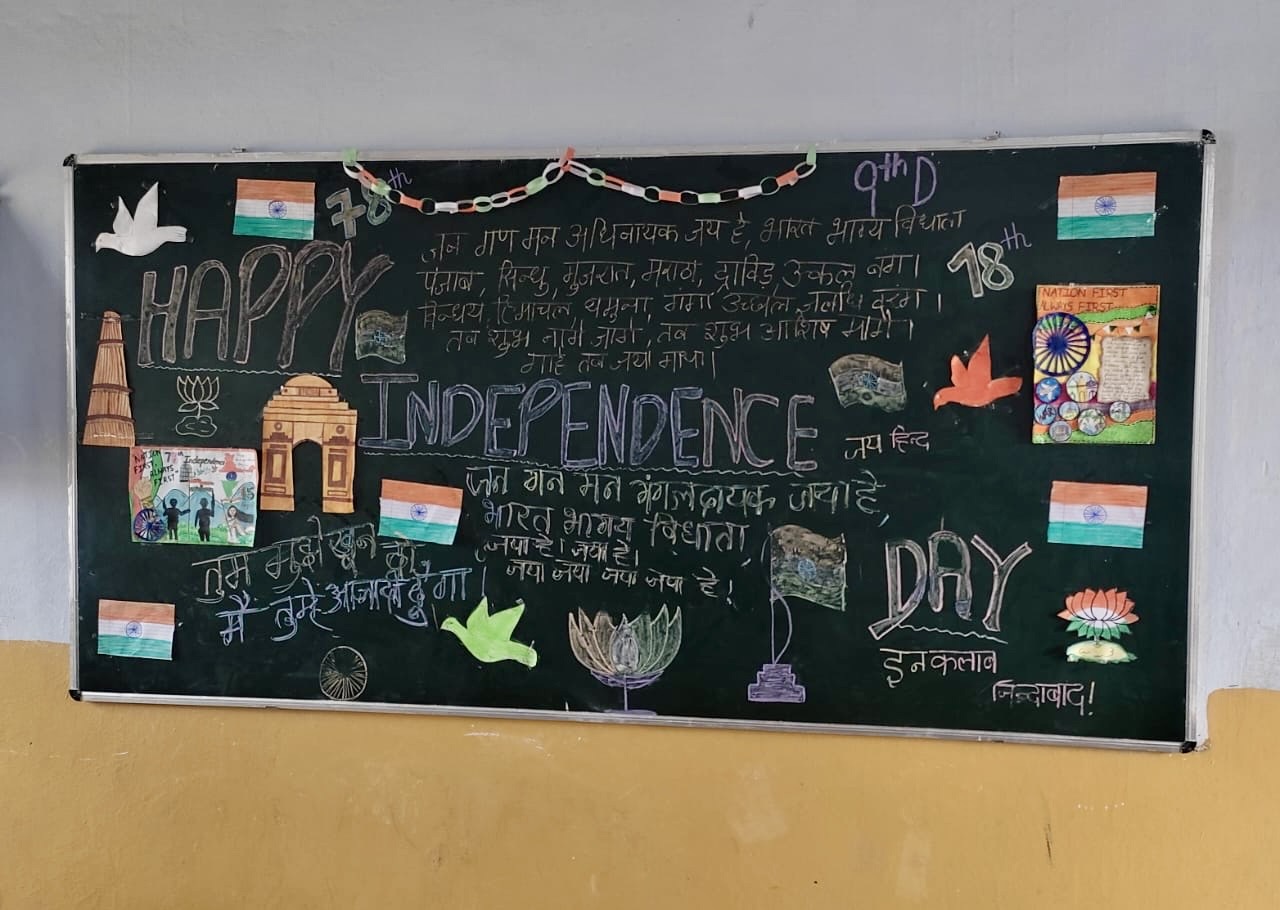 78th
9th D
HAPPY
जन गण मन अधिनायक जय हे, भारत भाग्य विधाता
पंजाब, सिन्धु, गुजरात, मराठा, द्राविड़ उत्कल बंग।
विन्धय हिमाचल यमुना, गंगा उच्छल जलधि तरंग।
तब शुभ नामे जागे, तब शुभ आशिष मांगे।
गाहे तब जया गाथा।
78th
NATION FIRST
ALWAYS FIRST
INDEPENDENCE
जय हिन्द
NATION FIRST, ALWAYS FIRST
Independence
जन गन मन मंगलदायक जया हे,
भारत भागय विधाता
जया हे। जया हे।
जया जया जया जया हे!
तुम मुझे खून दो
मैं तुम्हे आजादी दुँगा।
DAY
इनकलाब
जिन्दाबाद!